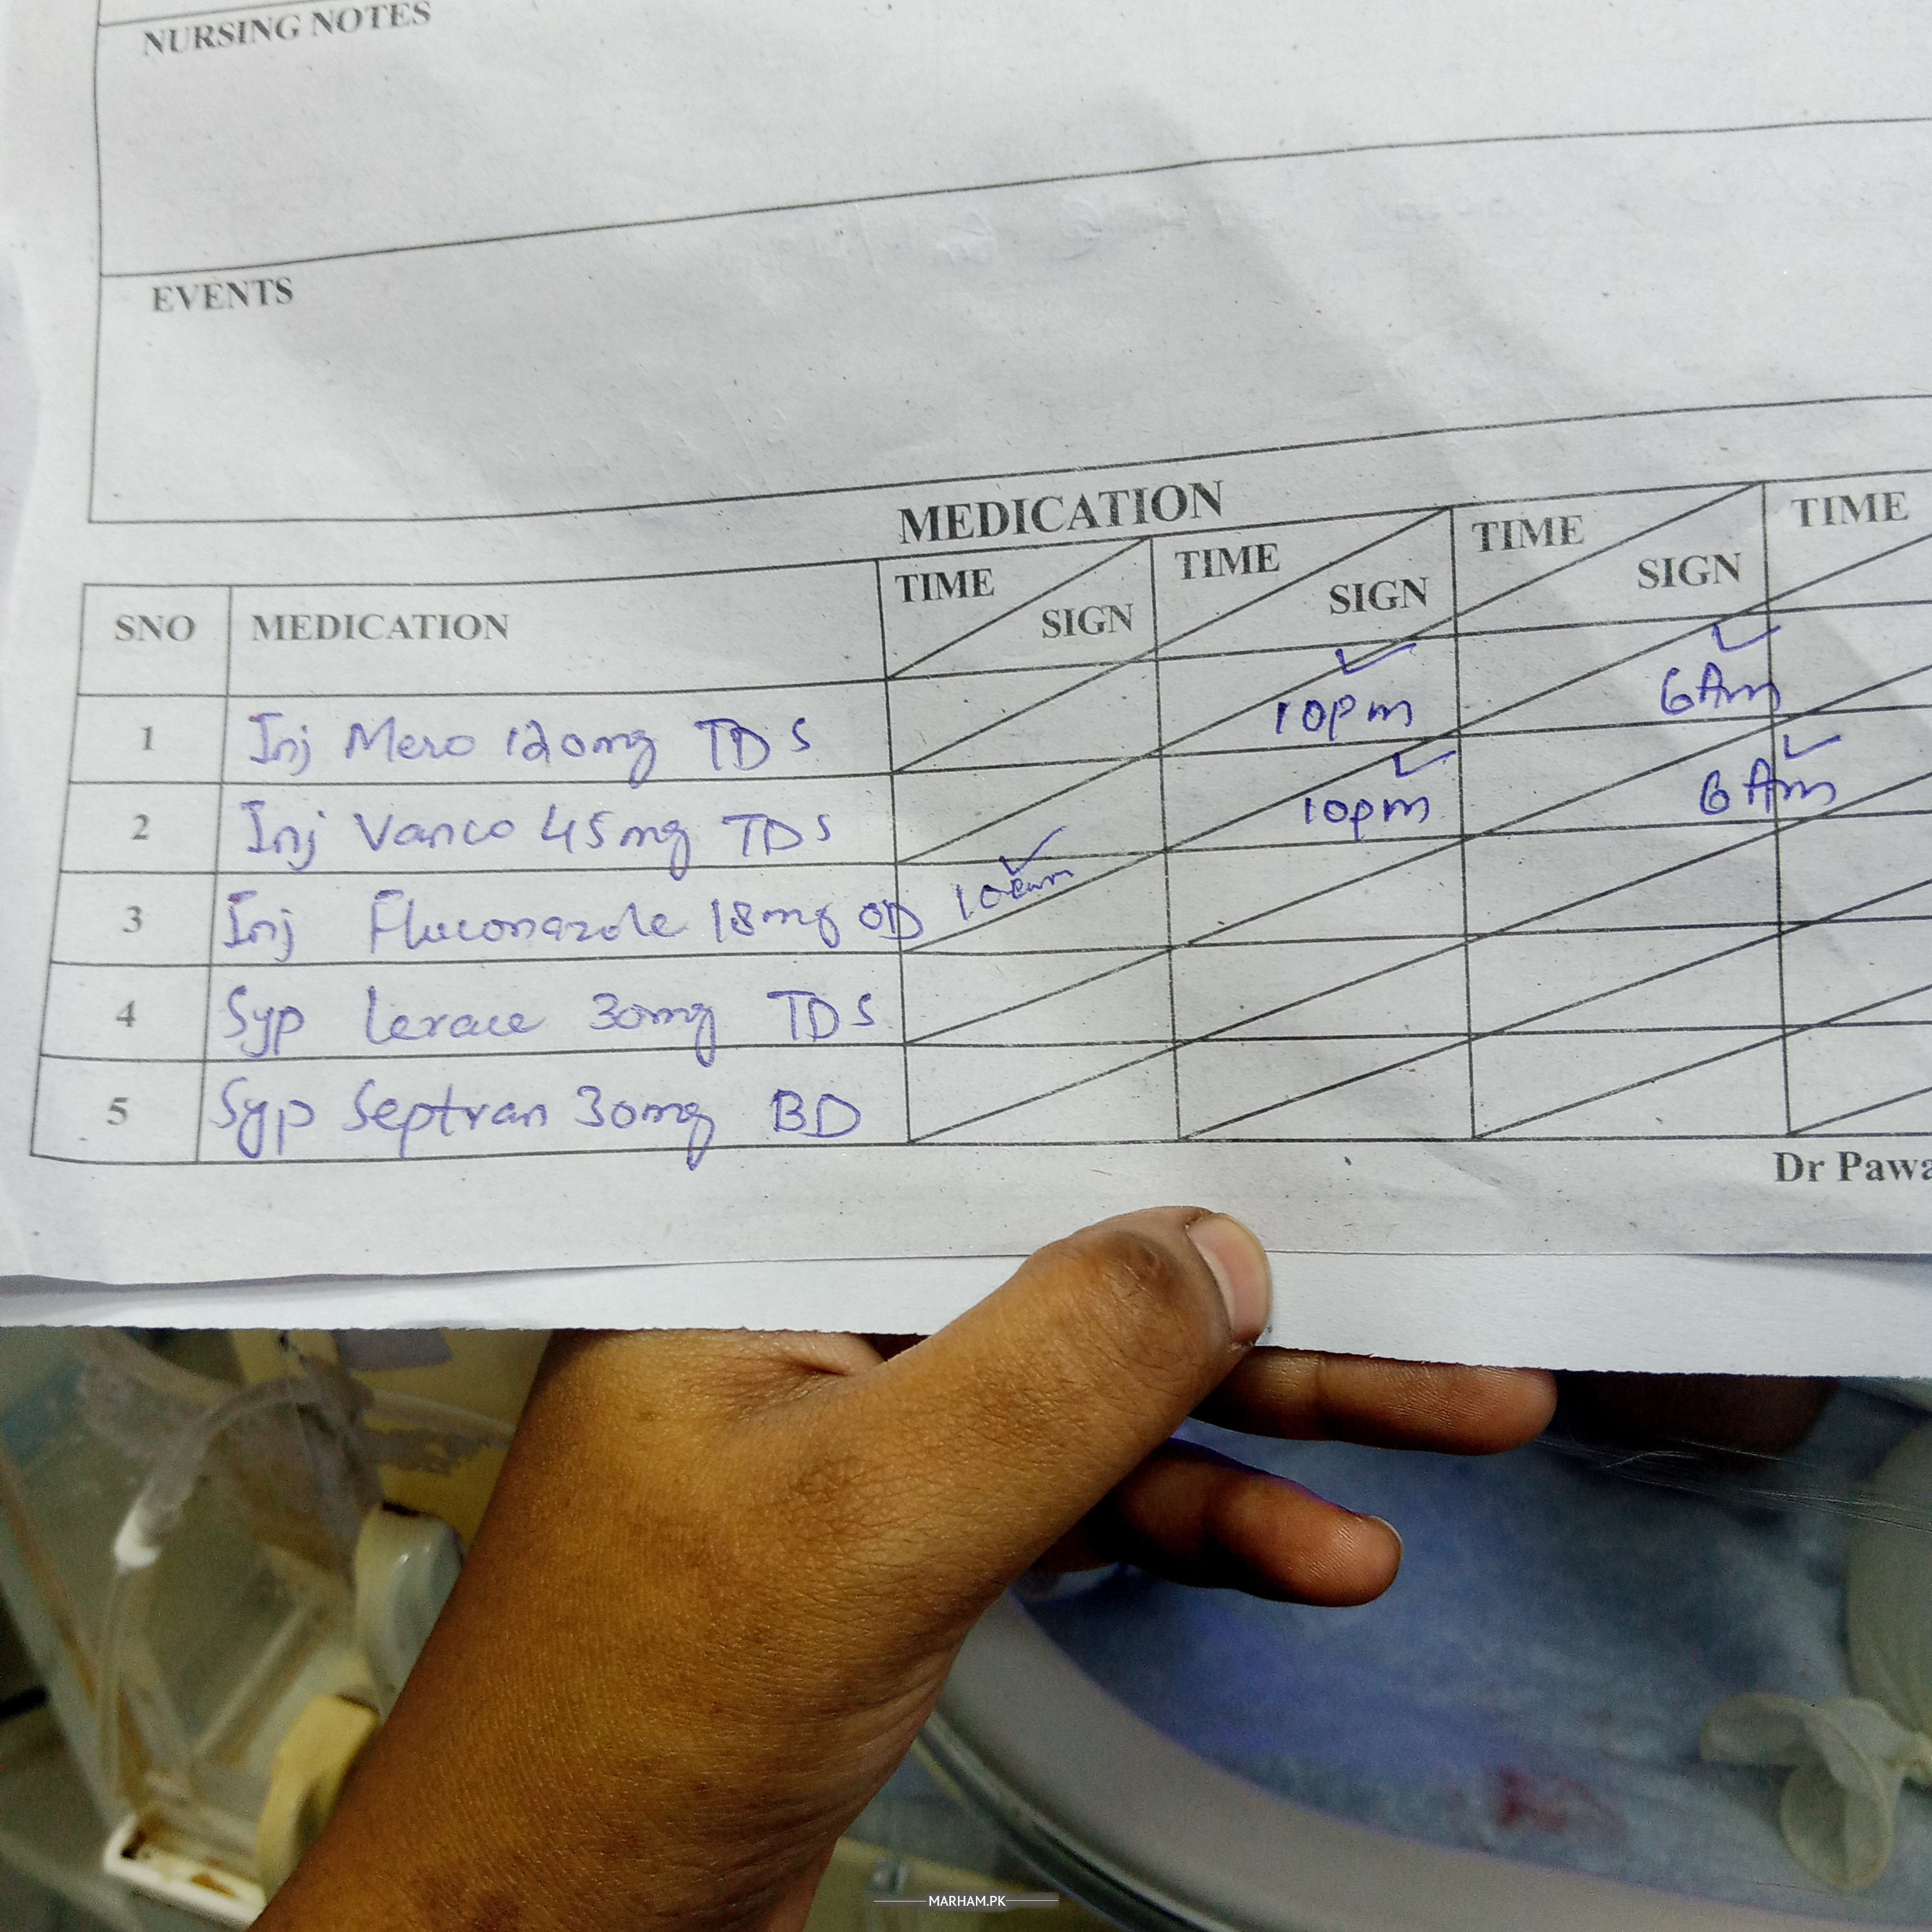 NURSING NOTES
EVENTS
MEDICATION
SNO MEDICATION TIME SIGN TIME SIGN TIME SIGN TIME
1 Inj Mero 120mg TDS 10pm 6Am
2 Inj Vanco 45mg TDS 10pm 6Am
3 Inj Fluconazole 18mg OD 10am
4 Syp Lerace 30mg TDS
5 Syp Septran 30mg BD
Dr Pawa
MARHAM.PK